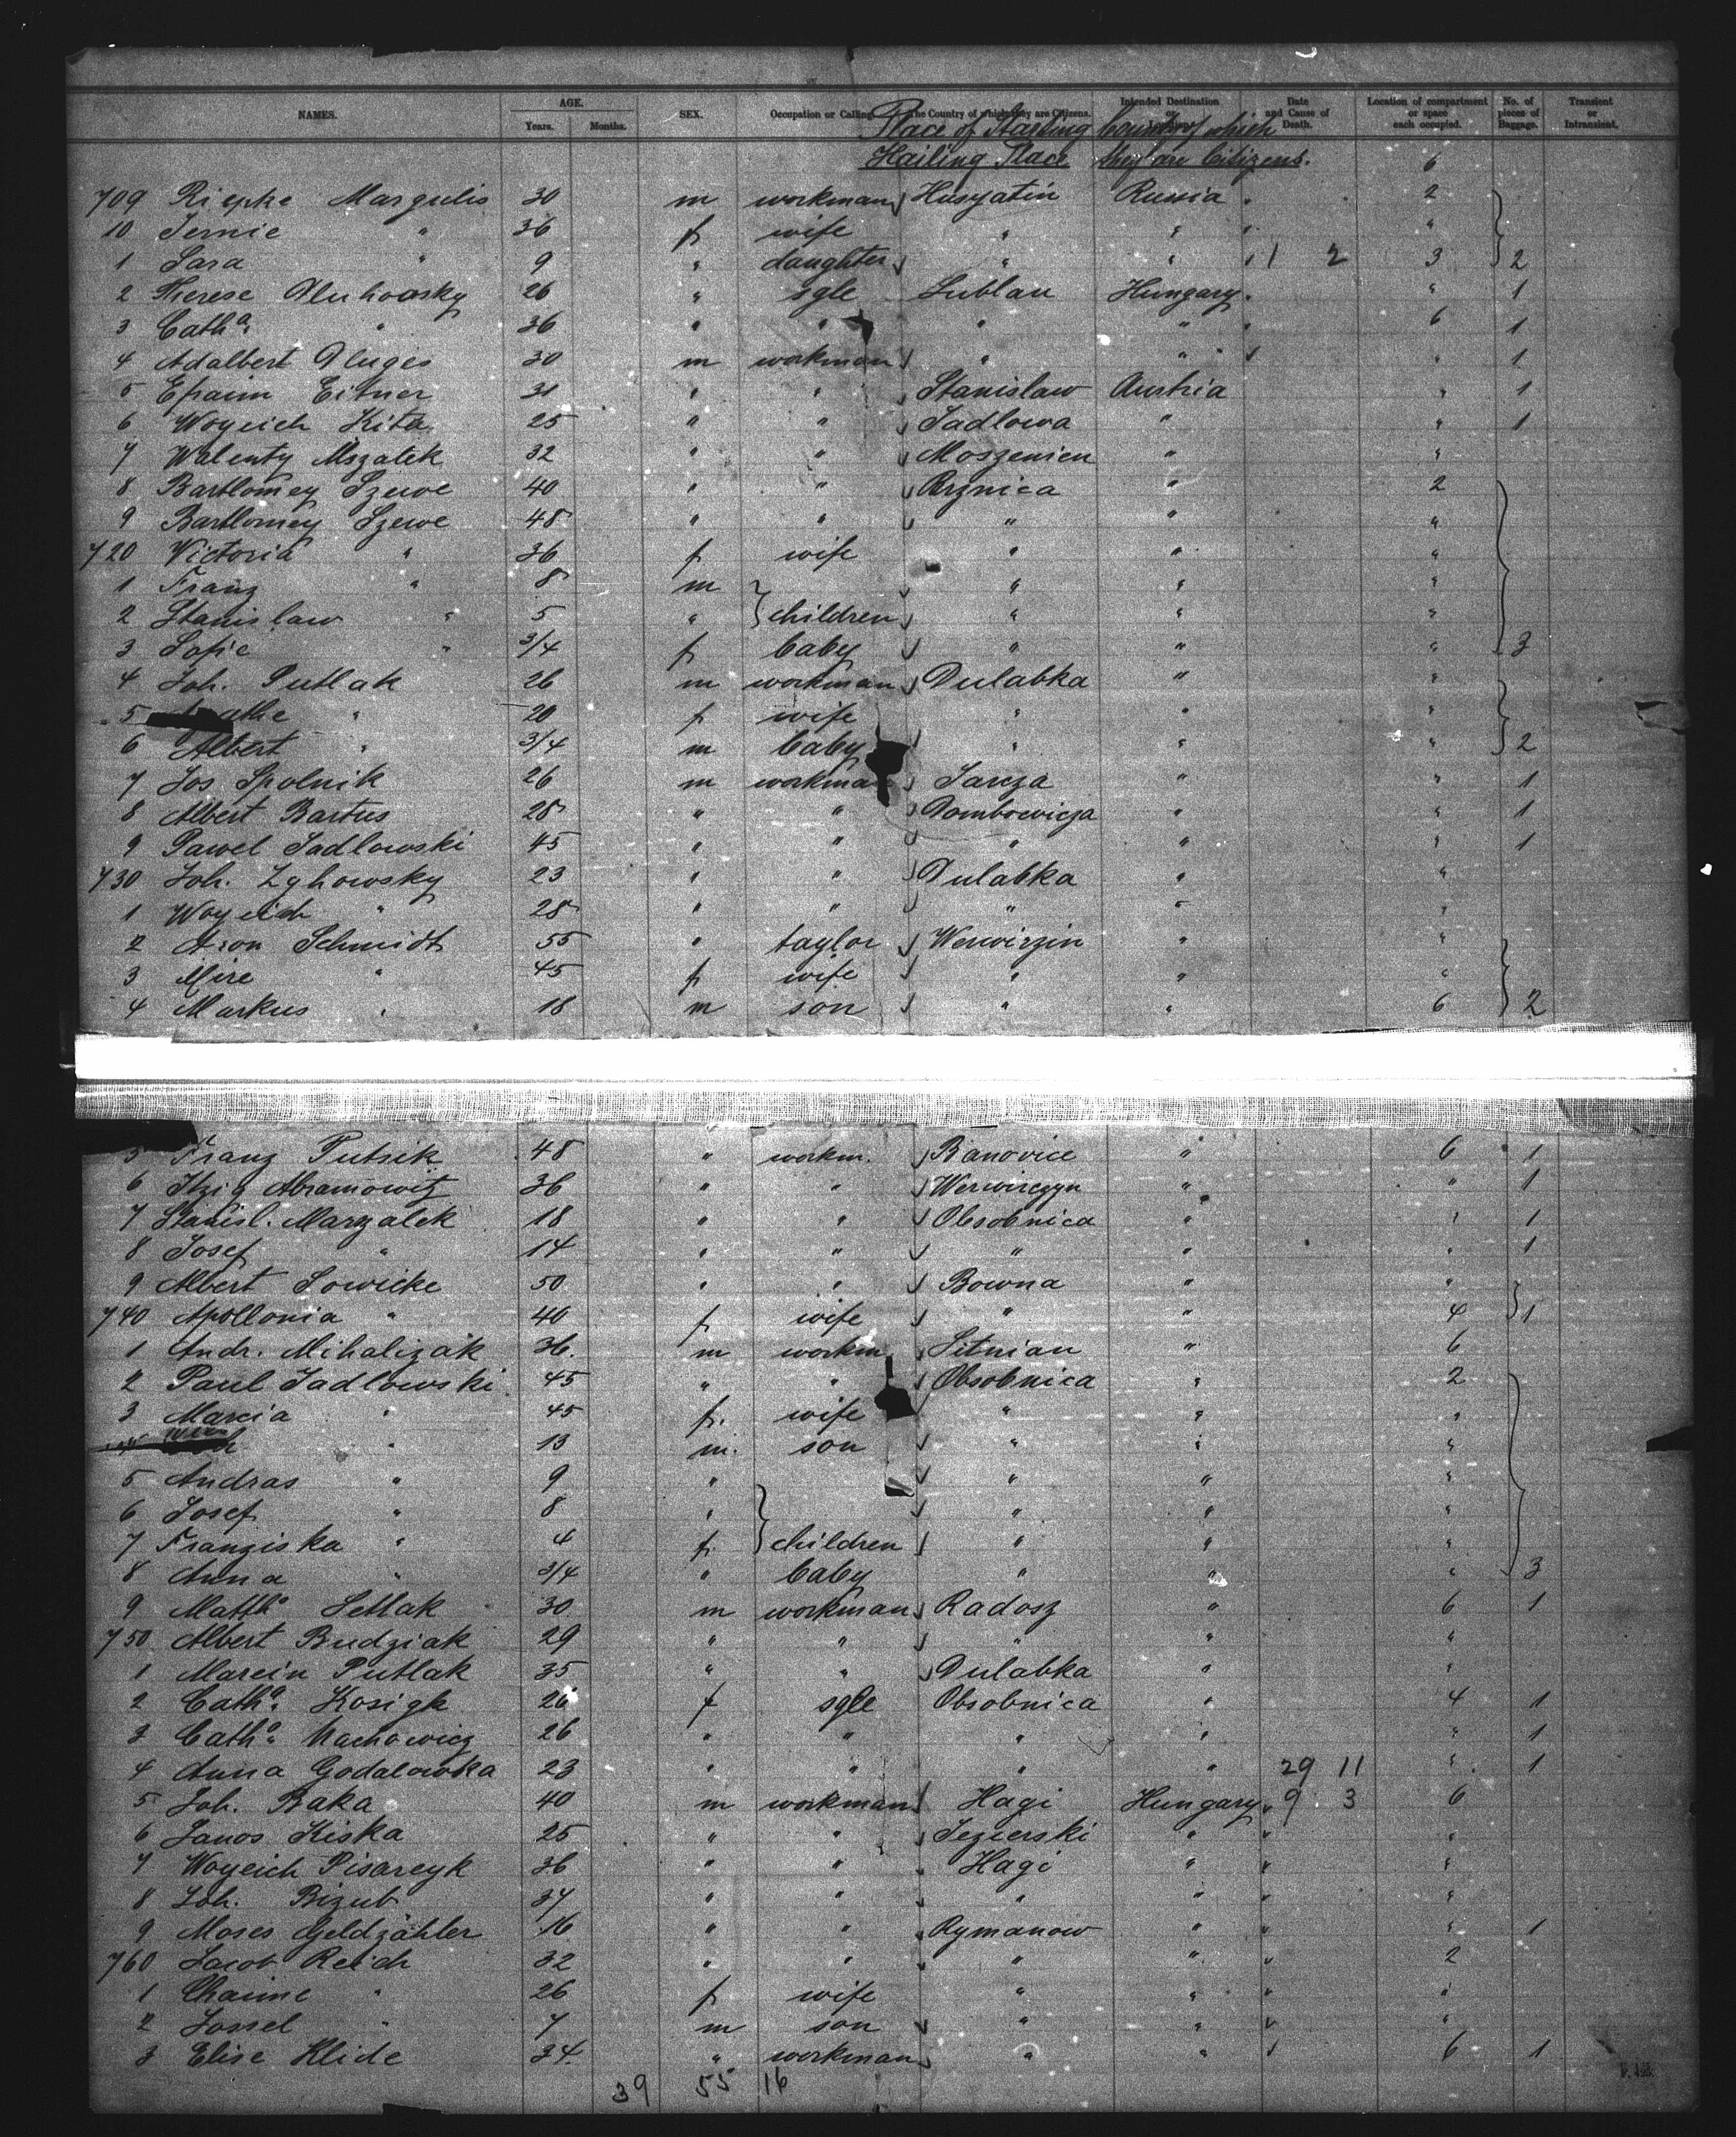 NAMES. AGE. Years. Months. SEX. Occupation or Calling. The Country of which they are Citizens. Intended Destination or Location. Date and Cause of Death. Location of compartment or space each occupied. No. of pieces of Baggage. Transient or Intransient.
Place of Starting Country of which
Hailing Place they are Citizens. 6
709 Riepke Margulis 30 m workman Husyatin Russia 2
10 " 36 f wife " " "
1 Sara " 9 " daughter " " 1 2 3 2
2 Therese 26 " sgle Lublau Hungary " 1
3 Catha. " 36 " " " " 6 1
4 Adalbert Pluges 30 m workman " " " 1
5 Efraim Eitner 31 " " Stanislaw Austria " 1
6 Woycich Kita 25 " " Jadlowa " " 1
7 Walenty Mszalek 32 " " Moszenien " "
8 Bartlomey Szewe 40 " " Brznica " 2
9 Bartlomey Szewe 48 " " " " "
720 Victoria " 36 f wife " " "
1 Franz " 8 m " " "
2 Stanislaw " 5 " children " " "
3 Sofie " 3/4 f baby " " " 3
4 Joh. Putlak 26 m workman Dulabka " "
5 " 20 f wife " " "
6 Albert " 3/4 m baby " " " 2
7 Jos Spolnik 26 m workman Jareza " " 1
8 Albert Bartus 28 " " Dombrowicza " " 1
9 Pawel Jadlowski 45 " " " " " 1
730 Joh. Zyhowsky 23 " " Dulabka " "
1 Woycich " 28 " " " " "
2 Aron Schmidt 55 " taylor Werwirzin " "
3 Mire " 45 f wife " " "
4 Markus " 18 m son " " 6 2
5 Franz Putsik 48 " workm. Banovice " 6 1
6 Itzig Abramowitz 36 " " Werwirczyn " " 1
7 Stanisl. Marzalek 18 " " Obsobnica " " 1
8 Josef " 14 " " " " " 1
9 Albert Sowicke 50 " " Bowna " "
740 Apollonia " 40 f wife " " 4 1
1 Andr. Mihalizak 36. m workm Litnian " 6
2 Paul Jadlowski 45 " " Obsobnica " 2
3 Marcia " 45 f. wife " " "
" 13 m. son " " "
5 Andras " 9 " " " "
6 Josef " 8 " " " "
7 Franziska " 4 f. children " " "
8 Anna " 3/4 " baby " " " 3
9 Matths Setlak 30 m workman Radosz " 6 1
750 Albert Budziak 29 " " " " "
1 Marcin Putlak 35 " " Dulabka " "
2 Catha. Kosigk 26 f sgle Obsobnica " 4 1
3 Catha. Machowicz 26 " " " " " 1
4 Anna Godalowka 23 " " " " 29 11 " 1
5 Joh. Baka 40 m workman Hagi Hungary 9 3 6
6 Janos Kiska 25 " " Jezierski " " "
7 Woyciech Pisarcyk 36 " " Hagi " " "
8 Joh. Bizub 34 " " " " " "
9 Moses Geldzähler 16 " " Rymanow " " " 1
760 Jacob Reich 32 " " " " " 2
1 Chaime " 26 f wife " " " "
2 Jossel " 7 m son " " "
3 Elise Klide 34. " workman " " 6 1
39 55 16